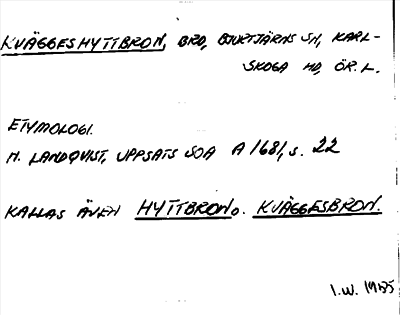 KVÄGGESHYTTBRON, BRO, BJURTJÄRNS SN, KARL-
SKOGA HD, ÖR. L.
ETYMOLOGI.
H. LANDQVIST, UPPSATS SOA A 1681, s. 22
KALLAS ÄVEN HYTTBRON o. KVÄGGESBRON.
I.W.